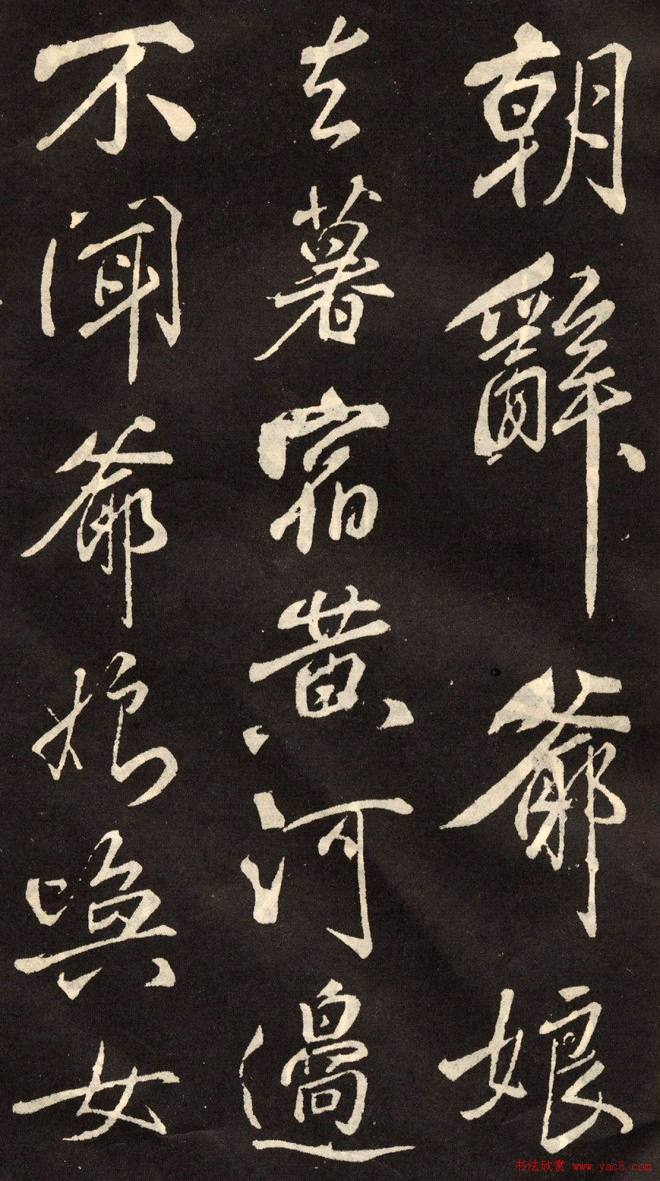 朝辭爺娘
去暮宿黃河邊
不聞爺娘喚女
书法欣赏 www.yac8.com